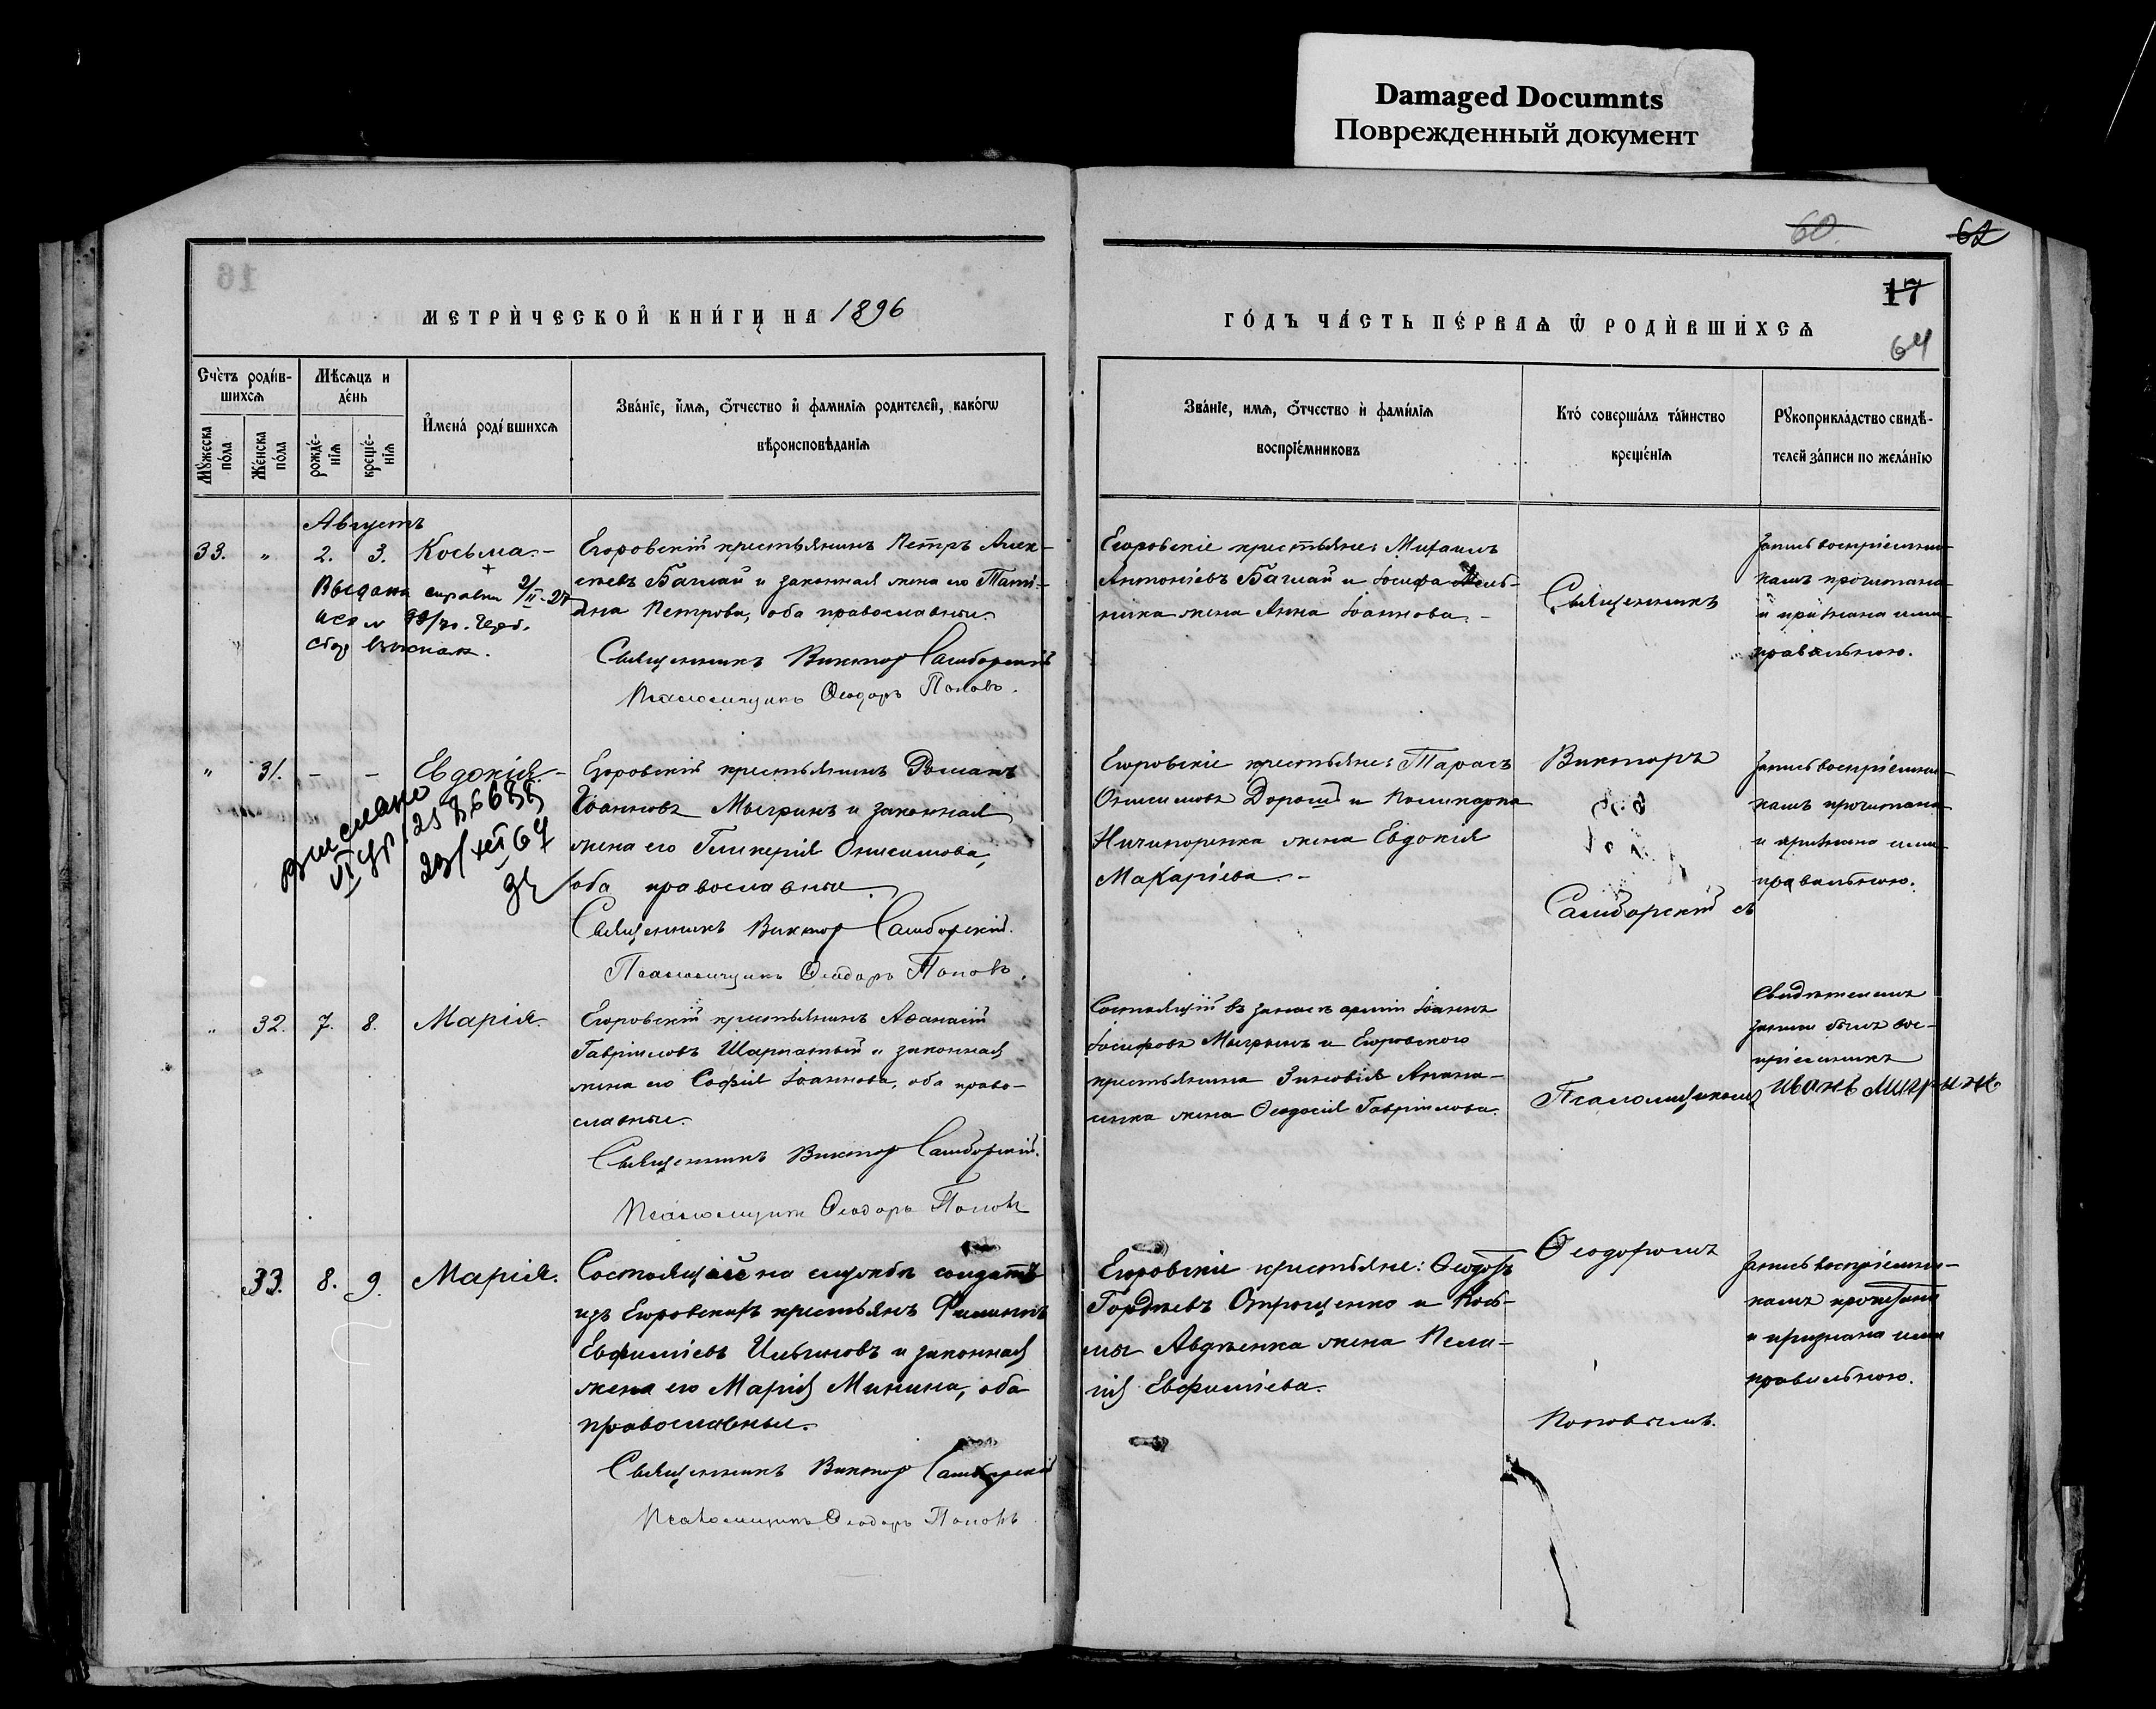 Damaged Documnts
Поврежденный документ
60.
62
17
64
МЕТРИЧЕСКОЙ КНИГИ НА 1896
ГОДЪ ЧАСТЬ ПЕРВАЯ Ѡ РОДИВШИХСЯ
Счетъ родив-
шихся
Мужеска
пола
Женска
пола
Мѣсяцъ и
день
рожде-
нія
креще-
нія
Имена родившихся
Званіе, имя, отчество и фамилія родителей, какогѡ
вѣроисповѣданія
Званіе, имя, отчество и фамилія
воспріемниковъ
Кто совершалъ таинство
крещенія
Рукоприкладство свидѣ-
телей записи по желанію
Августъ
33. " 2. 3. Косьма.-
Выдана справка 2/II-27
сбор взыскан.
Егоровскій крестьянинъ Петръ Алек-
сѣевъ Баглай и законная жена его Тати-
яна Петрова, оба православные.
Священникъ Викторъ Самборскій
Псаломщикъ Ѳеодоръ Поповъ.
Егоровскіе крестьяне: Михаилъ
Антоніевъ Баглай и Іосифа Мель-
ника жена Анна Іоаннова.-
Священникъ
Запись воспріемни-
камъ прочитана
и признана ими
правильною.
" 31. - - Евдокія.-
Егоровскій крестьянинъ Романъ
Іоанновъ Мыгринъ и законная
жена его Гликерія Онисимова,
оба православные.
Священникъ Викторъ Самборскій.
Псаломщикъ Ѳеодоръ Поповъ.
Егоровскіе крестьяне: Тарасъ
Онисимовъ Дорошъ и Поликарпа
Ничипоренка жена Евдокія
Макаріева.-
Викторъ
Самборскій съ
Запись воспріемни-
камъ прочитана
и признана ими
правильною.
" 32. 7. 8. Марія.
Егоровскій крестьянинъ Аѳанасій
Гавріиловъ Шарпатый и законная
жена его Софія Іоаннова, оба право-
славные.
Священникъ Викторъ Самборскій.
Псаломщикъ Ѳеодоръ Поповъ
Состоящій въ запасѣ арміи Іоаннъ
Іосифовъ Мыгрынъ и Егоровскаго
крестьянина Зиновія Анана-
щика жена Ѳеодосія Гавріилова.
Псаломщикомъ
Свидѣтелемъ
записи былъ вос-
пріемникъ
Иванъ Мигрынъ
33. 8. 9. Марія.
Состоящій на службѣ солдатъ
изъ Егоровскихъ крестьянъ Филиппъ
Евфиміевъ Ильиновъ и законная
жена его Марія Минина, оба
православные.
Священникъ Викторъ Самборскій
Псаломщикъ Ѳеодоръ Поповъ
Егоровскіе крестьяне: Ѳеодоръ
Гордѣевъ Отрощенко и Кось-
мы Авдѣенка жена Пела-
гія Евфиміева.
Ѳеодоромъ
Поповымъ.
Запись воспріемни-
камъ прочитана
и признана ими
правильною.